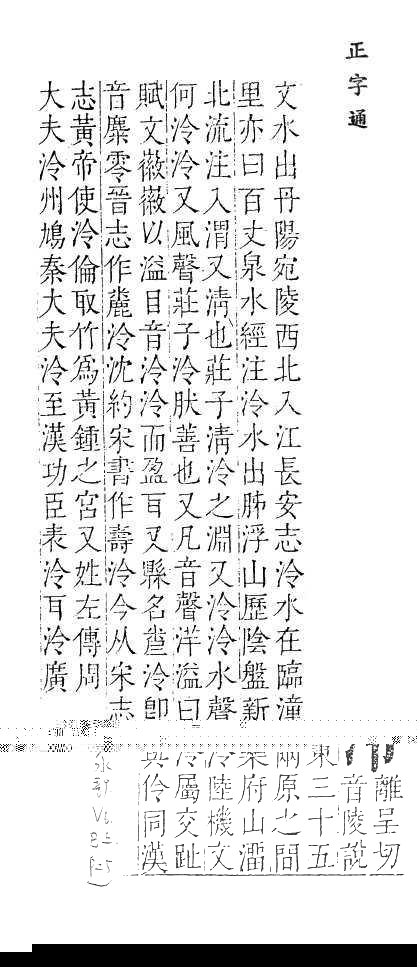 正字通
文水出丹陽宛陵西北入江長安志泠水在臨潼
里亦曰百丈泉水經注泠水出肺浮山歷陰盤新
北流注入渭又淸也莊子淸泠之淵又泠泠水聲
何泠泠又風聲莊子泠肤善也又凡音聲洋溢曰
賦文徽徽以溢目音泠泠而盈耳又縣名泠卽
音麋零晉志作麊泠沈約宋書作壽泠今从宋志
志黃帝使泠倫取竹爲黃鍾之宮又姓左傳周
大夫泠州鳩秦大夫泠至漢功臣表泠耳泠廣
離呈切
音陵說
東三十五
兩原之間
府山澑
泠陸機文
泠屬交趾
伶同漢